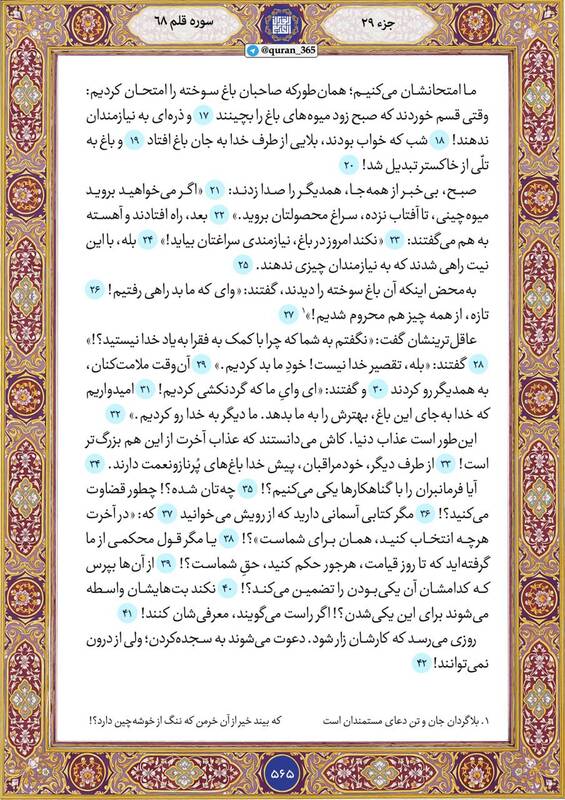 جزء ۲۹
سوره قلم ۶۸
@quran_365
ما امتحانشان می‌کنیم؛ همان‌طورکه صاحبان باغ سوخته را امتحان کردیم:
وقتی قسم خوردند که صبح زود میوه‌های باغ را بچینند ۱۷ و ذره‌ای به نیازمندان
ندهند! ۱۸ شب که خواب بودند، بلایی از طرف خدا به جان باغ افتاد ۱۹ و باغ به
تلّی از خاکستر تبدیل شد! ۲۰
صبح، بی‌خبر از همه‌جا، همدیگر را صدا زدند: ۲۱ «اگر می‌خواهید بروید
میوه‌چینی، تا آفتاب نزده، سراغ محصولتان بروید.» ۲۲ بعد، راه افتادند و آهسته
به هم می‌گفتند: ۲۳ «نکند امروز در باغ، نیازمندی سراغتان بیاید!» ۲۴ بله، با این
نیت راهی شدند که به نیازمندان چیزی ندهند. ۲۵
به‌محض اینکه آن باغ سوخته را دیدند، گفتند: «وای که ما بد راهی رفتیم! ۲۶
تازه، از همه چیز هم محروم شدیم!»۱ ۲۷
عاقل‌ترینشان گفت: «نگفتم به شما که چرا با کمک به فقرا به یاد خدا نیستید؟!»
۲۸ گفتند: «بله، تقصیر خدا نیست! خودِ ما بد کردیم.» ۲۹ آن‌وقت ملامت‌کنان،
به همدیگر رو کردند ۳۰ و گفتند: «ای وایِ ما که گردنکشی کردیم! ۳۱ امیدواریم
که خدا به‌جای این باغ، بهترش را به ما بدهد. ما دیگر به خدا رو کردیم.» ۳۲
این‌طور است عذاب دنیا. کاش می‌دانستند که عذاب آخرت از این هم بزرگ‌تر
است! ۳۳ از طرف دیگر، خودمراقبان، پیش خدا باغ‌های پُرنازونعمت دارند. ۳۴
آیا فرمانبران را با گناهکارها یکی می‌کنیم؟! ۳۵ چه‌تان شده؟! چطور قضاوت
می‌کنید؟! ۳۶ مگر کتابی آسمانی دارید که از رویش می‌خوانید ۳۷ که: «در آخرت
هرچه انتخاب کنید، همان برای شماست»؟! ۳۸ یا مگر قول محکمی از ما
گرفته‌اید که تا روز قیامت، هرجور حکم کنید، حقِ شماست؟! ۳۹ از آن‌ها بپرس
که کدامشان آن یکی‌بودن را تضمین می‌کند؟! ۴۰ نکند بت‌هایشان واسطه
می‌شوند برای این یکی‌شدن؟! اگر راست می‌گویند، معرفی‌شان کنند! ۴۱
روزی می‌رسد که کارشان زار شود. دعوت می‌شوند به سجده‌کردن؛ ولی از درون
نمی‌توانند! ۴۲
۱. بلاگردان جان و تن دعای مستمندان است که بیند خیر از آن خرمن که ننگ از خوشه‌چین دارد؟!
۵۶۵